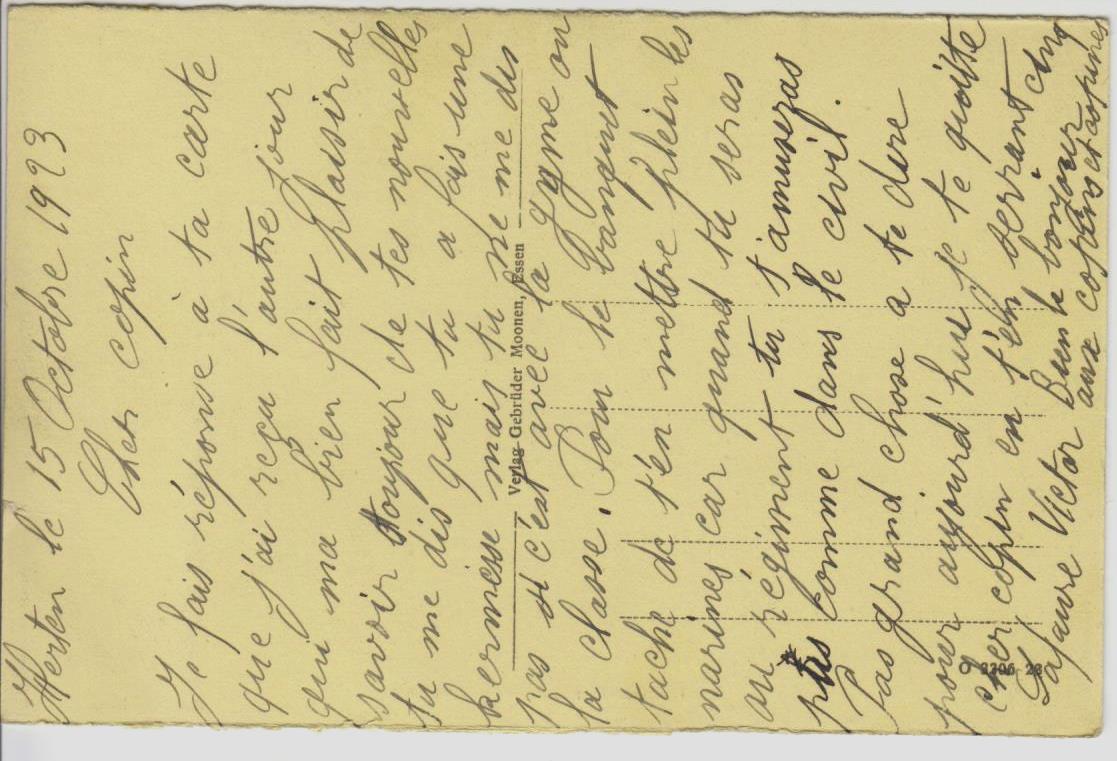 Herten le 15 Octobre 1923
Cher copin
Je fais réponse à ta carte
que j'ai reçu l'autre jour
qui ma bien fait plaisir de
savoir toujour de tes nouvelles
tu me dis que tu a fais une
kermesse mais tu ne me dis
pas si c'est avec la gyme ou
la classe. Pour le banquet
tache de t'en mettre plein les
narines car quand tu seras
au régiment tu t'amuseras
pas comme dans le civil.
Pas grand chose a te dire
pour aujourd'hui je te quitte
cher copin en t'en serrant cinq
Victor Bien le bonjour
aux copins et copines
Verlag Gebrüder Moonen, Essen